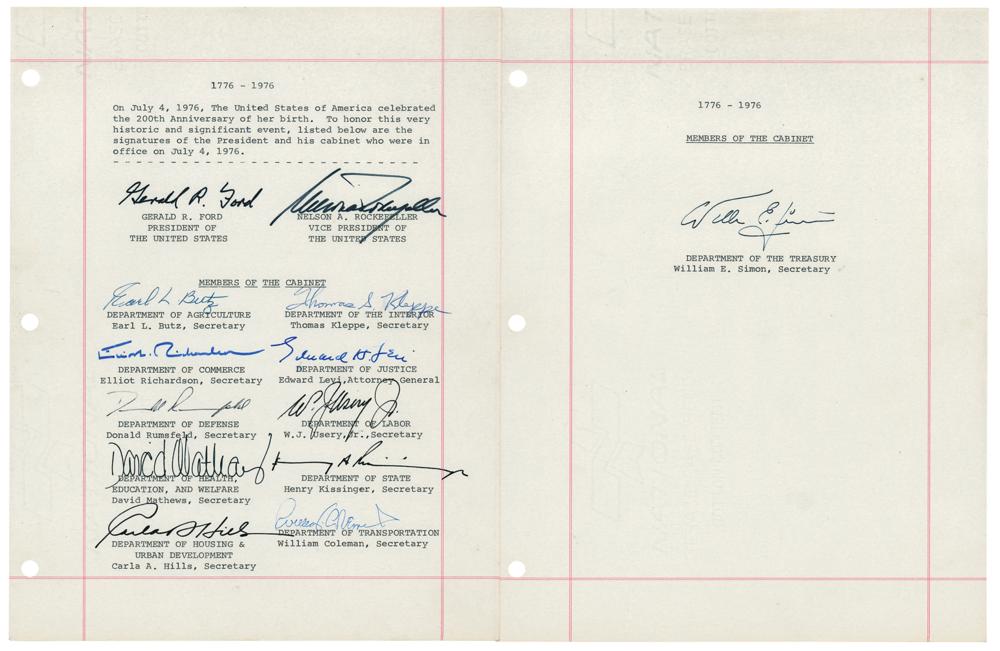 1776 - 1976
On July 4, 1976, The United States of America celebrated
the 200th Anniversary of her birth. To honor this very
historic and significant event, listed below are the
signatures of the President and his cabinet who were in
office on July 4, 1976.
Gerald R. Ford
GERALD R. FORD
PRESIDENT OF
THE UNITED STATES
Nelson A. Rockefeller
NELSON A. ROCKEFELLER
VICE PRESIDENT OF
THE UNITED STATES
MEMBERS OF THE CABINET
Earl L. Butz
DEPARTMENT OF AGRICULTURE
Earl L. Butz, Secretary
Thomas S. Kleppe
DEPARTMENT OF THE INTERIOR
Thomas Kleppe, Secretary
Elliot Richardson
DEPARTMENT OF COMMERCE
Elliot Richardson, Secretary
Edward H. Levi
DEPARTMENT OF JUSTICE
Edward Levi, Attorney General
Donald Rumsfeld
DEPARTMENT OF DEFENSE
Donald Rumsfeld, Secretary
W. J. Usery Jr.
DEPARTMENT OF LABOR
W.J. Usery, Jr., Secretary
David Mathews
DEPARTMENT OF HEALTH,
EDUCATION, AND WELFARE
David Mathews, Secretary
Henry A. Kissinger
DEPARTMENT OF STATE
Henry Kissinger, Secretary
Carla A. Hills
DEPARTMENT OF HOUSING &
URBAN DEVELOPMENT
Carla A. Hills, Secretary
DEPARTMENT OF TRANSPORTATION
William Coleman, Secretary
1776 - 1976
MEMBERS OF THE CABINET
William E. Simon
DEPARTMENT OF THE TREASURY
William E. Simon, Secretary